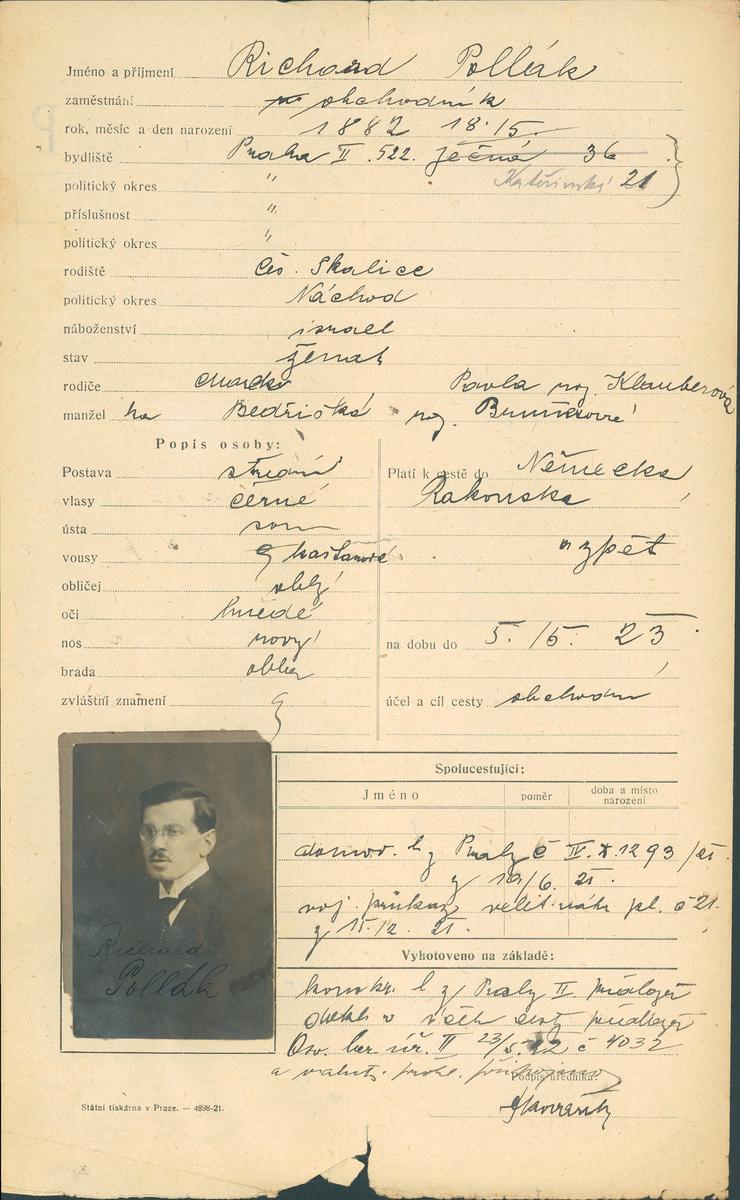 Jméno a příjmení Richard Pollák
zaměstnání obchodník
rok, měsíc a den narození 1882 18./5.
bydliště Praha II. 522. Ječná 36
politický okres " Kateřinská 21
příslušnost "
politický okres "
rodiště Čes. Skalice
politický okres Náchod
náboženství israel
stav ženat
rodiče Pavla roz. Klauberová
manžel ka Bedřiška roz.
Popis osoby:
Postava střední
vlasy černé
ústa soum
vousy kaštanové
obličej oblý
oči hnědé
nos rovný
brada oblá
zvláštní znamení
Platí k cestě do Německa
Rakouska
a zpět
na dobu do 5. /5. 23
účel a cíl cesty obchodní
Spolucestující:
Jméno poměr doba a místo narození
domov. l. z Prahy č IV. 1293/21
z 10/6. 21.
voj. průkaz velit. náhr. pl. č 21.
z 15./2. 21.
Vyhotoveno na základě:
l z Prahy II
v
Os. ber. úř. II 23/5. 22 č 4032
a
Podpis úředníka:
Richard
Pollák
Státní tiskárna v Praze. — 4898-21.